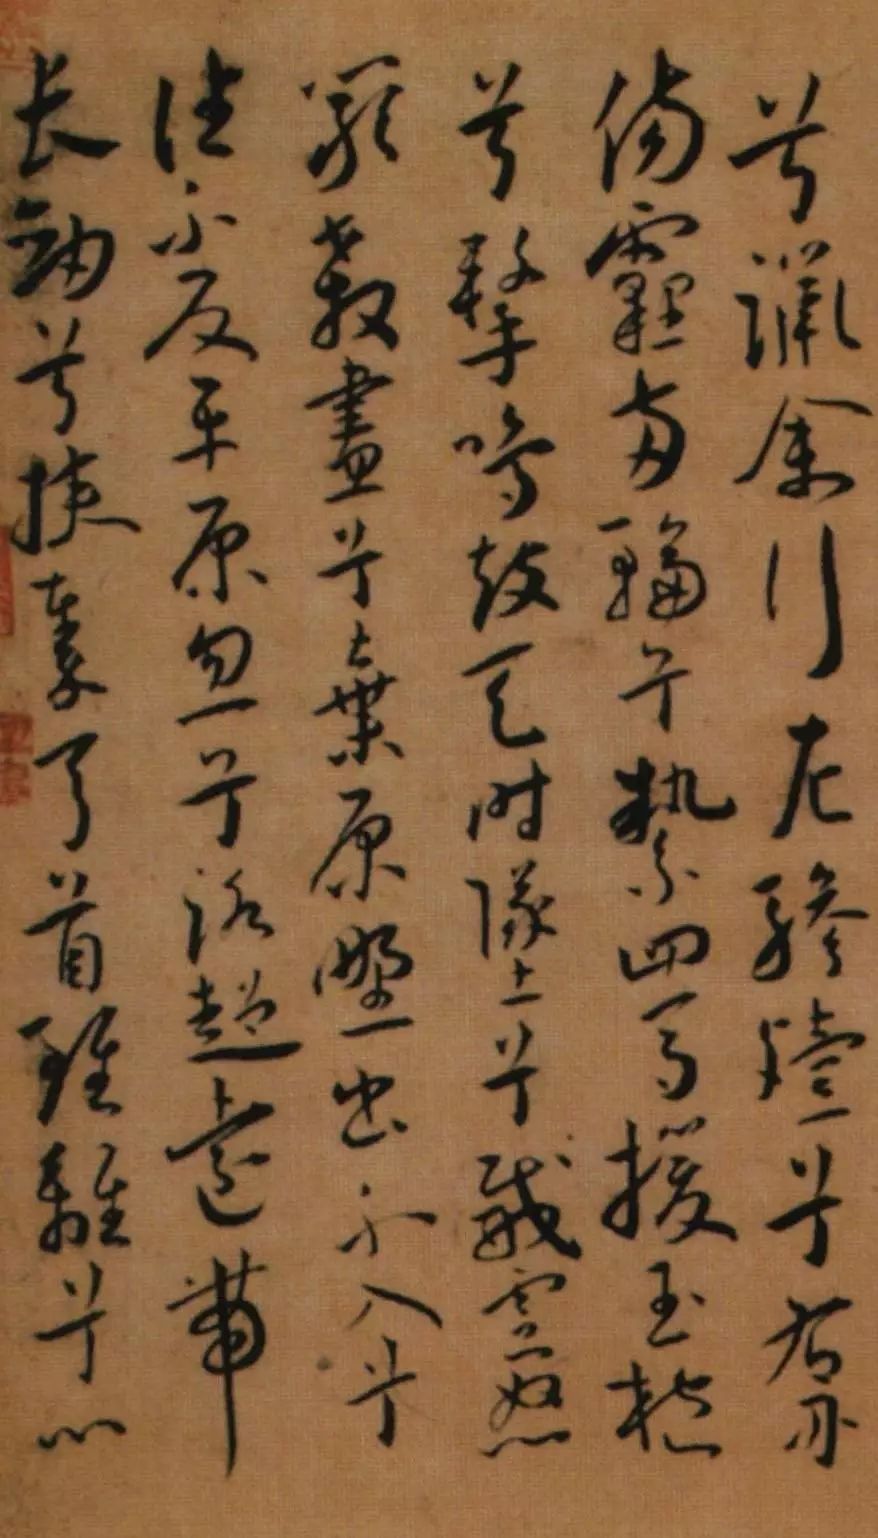 兮躐余行左驂殪兮右刃
傷霾兩輪兮縶四馬援玉枹
兮擊鳴鼓天時墜兮威靈怒
嚴殺盡兮棄原壄出不入兮
往不反平原忽兮路超遠帶
長劍兮挾秦弓首雖離兮心